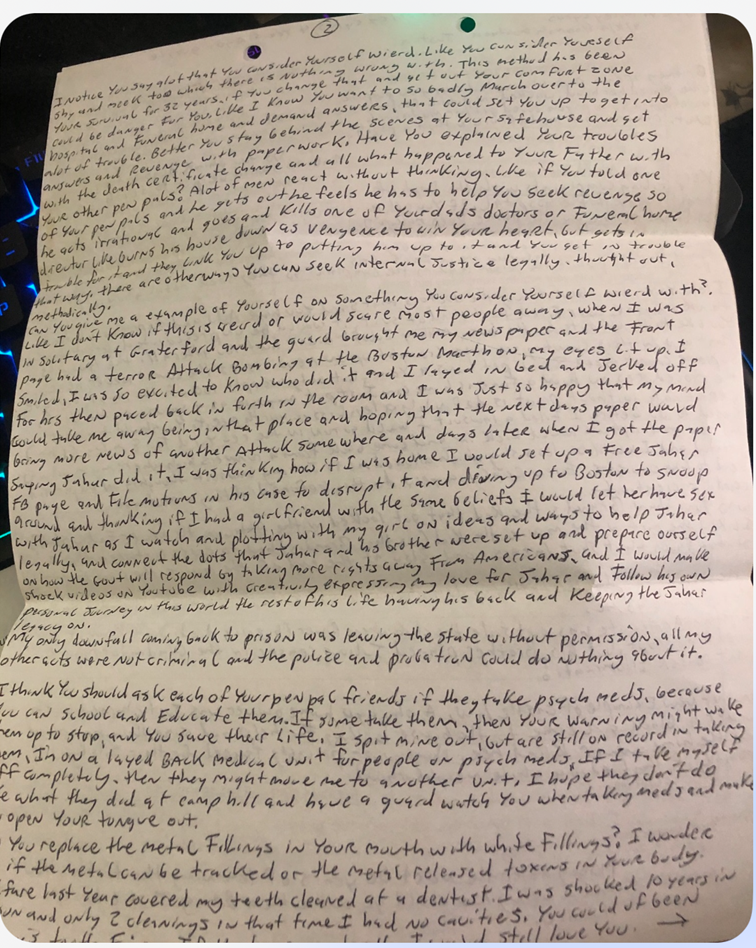 2
I notice You say alot that You consider Yourself wierd. Like You consider Yourself
shy and meek too which there is nothing wrong with. This method has been
Your survival for 32 years, if You change that and get out Your comfort zone
could be danger for You, like I know You want to so badly March over to the
hospital and Funeral home and demand answers, that could set You up to get into
alot of trouble. Better You stay behind the scenes at Your safehouse and get
answers and Revenge with paperwork. Have You explained Your troubles
with the death certificate change and all what happened to Your Father with
Your other pen pals? Alot of men react without thinking. Like if You told one
of Your pen pals and he gets out he feels he has to help You seek revenge so
he acts irrational and goes and Kills one of Your dads doctors or Funeral home
director like burns his house down as vengence to win Your heart, but gets in
trouble for it and they link You up to putting him up to it and You get in trouble
that way, there are other ways You can seek internal Justice legally, thought out,
methodically.
Can You give me a example of Yourself on something You consider Yourself wierd with?
Like I don't Know if this is weird or would scare most people away, when I was
in Solitary at Graterford and the guard brought me my newspaper and the Front
page had a terror Attack Bombing at the Boston Marthon, my eyes lit up. I
Smiled, I was so excited to know who did it and I layed in bed and Jerked off
For hrs then paced back in forth in the room and I was Just so happy that my mind
Could take me away being in that place and hoping that the next days paper would
bring more news of another Attack somewhere and days later when I got the paper
saying Jahar did it, I was thinking how if I was home I would set up a Free Jahar
FB page and File motions in his case to disrupt it and driving up to Boston to snoop
around and thinking if I had a girlfriend with the same beliefs I would let her have sex
with Jahar as I watch and plotting with my girl on ideas and ways to help Jahar
legally, and connect the dots that Jahar and his brother were set up and prepare ourself
on how the Govt will respond by taking more rights away From Americans, and I would make
shock videos on Youtube with creativity expressing my love for Jahar and Follow his own
personal Journey in this world the rest of his life having his back and Keeping the Jahar
legacy on.
My only downfall coming back to prison was leaving the state without permission, all my
other acts were not criminal and the police and probation could do nothing about it.
I think You should ask each of Your pen pal friends if they take psych meds, because
You can School and Educate them. If some take them, then Your warning might wake
em up to stop, and You save their life. I spit mine out, but are still on record in taking
em, Im on a layed BACK medical unit for people on psych meds, If I take myself
ff completely, then they might move me to another unit. I hope they don't do
e what they did at camp hill and have a guard watch You when taking meds and make
open Your tongue out.
You replace the metal Fillings in Your mouth with white Fillings? I wonder
if the metal can be tracked or the metal released toxins in Your body.
fare last Year covered my teeth cleaned at a dentist. I was shocked 10 years in
and only 2 cleanings in that time I had no cavities. You could of been
still love You. →